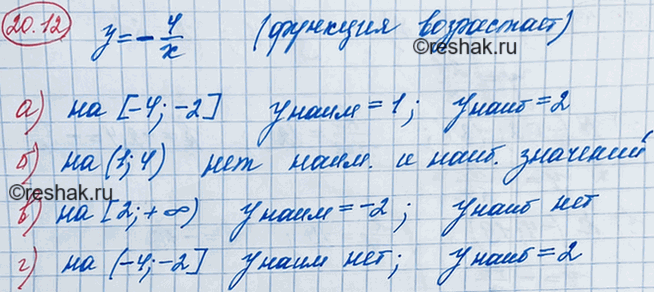 20.12 y = - 4/x (функция возрастает)
©reshak.ru
а) на [-4; -2] yнаим = 1; yнаиб = 2
б) на (1; 4) нет наим. и наиб. значений
©reshak.ru
в) на [2; +∞) yнаим = -2; yнаиб нет
г) на (-4; -2] yнаим нет; yнаиб = 2